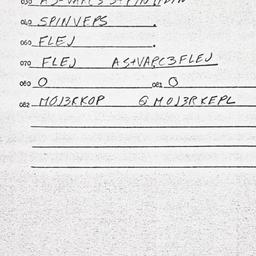 040 SPINVEPS .
060 FLEJ .
070 FLEJ AS+VARC3FLEJ
080 O 081 O
082 MOJ3RKOP QMOJ3RKEPL